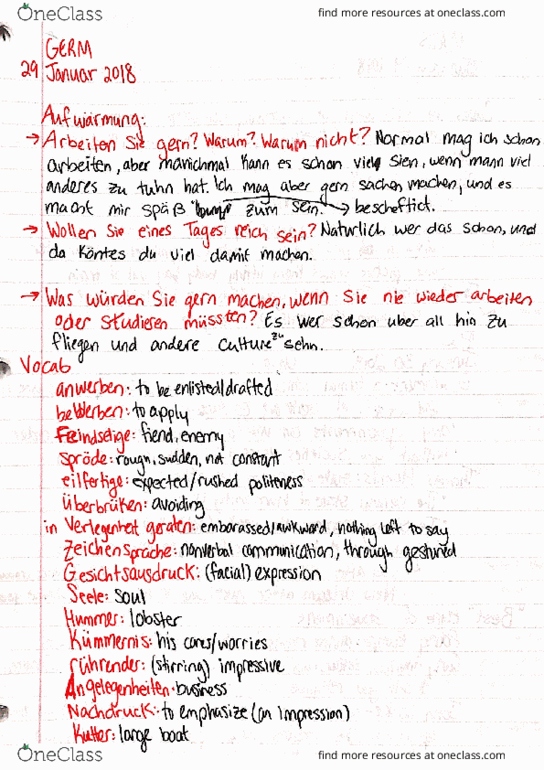 OneClass
find more resources at oneclass.com
GERM
29 Januar 2018
Aufwärmung:
→ Arbeiten Sie gern? Warum? Warum nicht? Normal mag ich schon
arbeiten, aber manichmal kann es schon viel sien, wenn mann viel
anderes zu tuhn hat. Ich mag aber gern sachen machen, und es
macht mir späß zum sein. → bescheftict.
→ Wollen Sie eines Tages reich sein? Naturlich wer das schon, und
da köntes du viel damit machen.
→ Was würden Sie gern machen, wenn Sie nie wieder arbeiten
oder studieren müssten? Es wer schon uber all hin zu
fliegen und andere culture zu sehn.
Vocab
anwerben: to be enlisted/drafted
bewerben: to apply
Feindselige: fiend, enemy
spröde: rough, sudden, not constant
eilfertige: expected/rushed politeness
Überbrüken: avoiding
in Verlegenheit geraten: embarassed/awkward, nothing left to say
Zeichensprache: nonverbal communication, through gestured
Gesichtsausdruck: (facial) expression
Seele: soul
Hummer: lobster
Kümmernis: his cares/worries
rührender: (stirring) impressive
Angelegenheiten: business
Nachdruck: to emphasize (an impression)
Kutter: large boat
OneClass
find more resources at oneclass.com